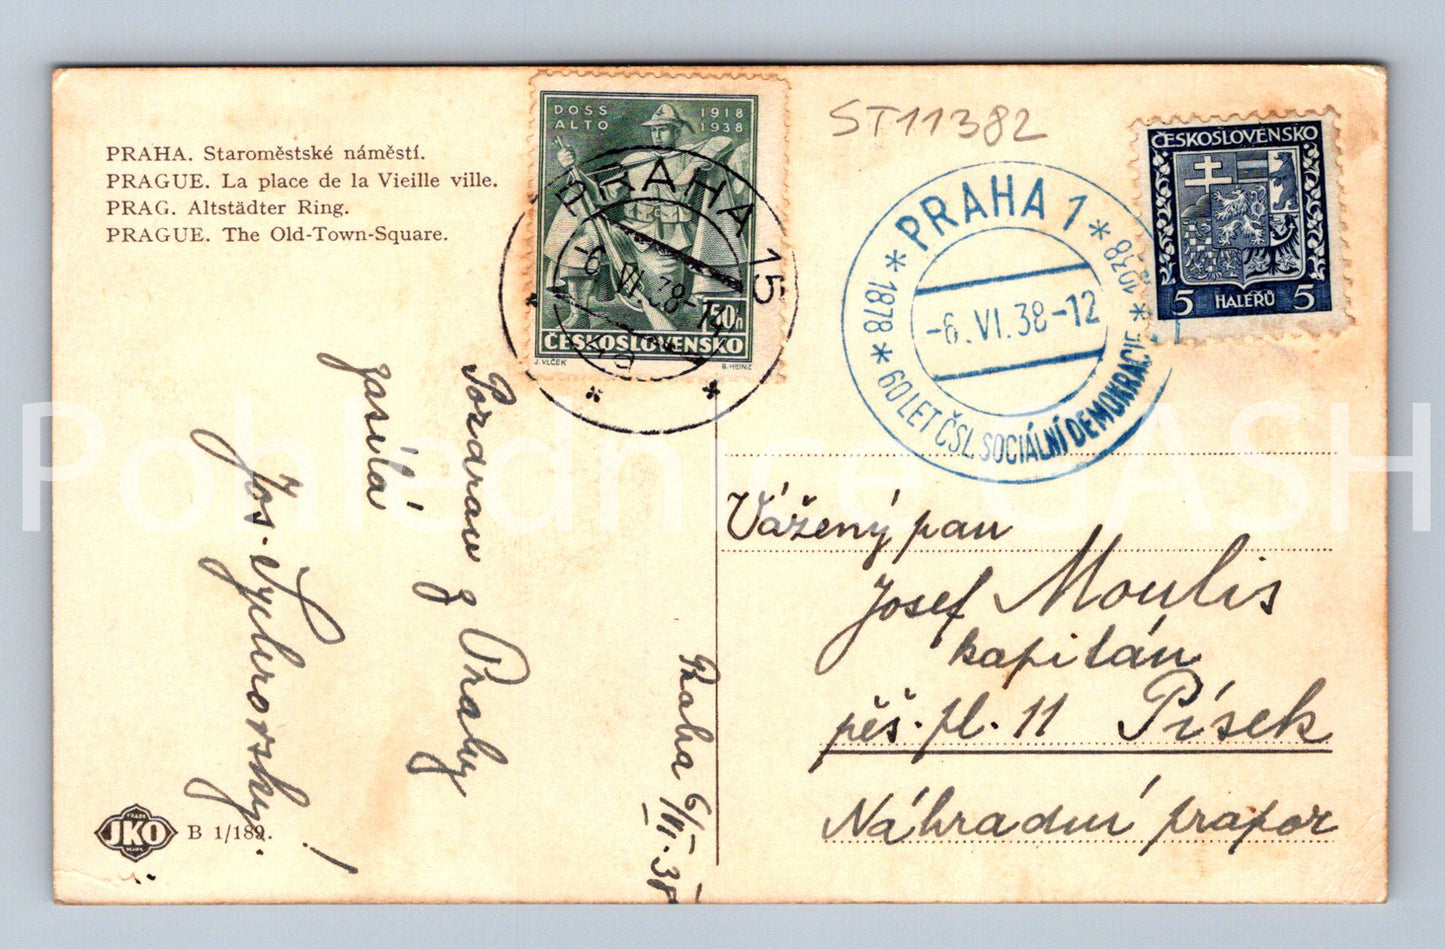 PRAHA. Staroměstské náměstí.
PRAGUE. La place de la Vieille ville.
PRAG. Altstädter Ring.
PRAGUE. The Old-Town-Square.
DOSS ALTO
1918 1938
50h
ČESKOSLOVENSKO
J. VLČEK
B. HEINZ
PRAHA 15
-6.VI.38-
ST11382
* PRAHA 1 *
-6.VI.38-12
1878 * 60 LET ČSL. SOCIÁLNÍ DEMOKRACIE * 1938
ČESKOSLOVENSKO
5 HALÉŘŮ 5
Pozdrav z Prahy
zasílá
Jos.
!
Praha 6/VI. 38
Vážený pan
Josef Moulis
kapitán
pěš. pl. 11 Písek
Náhradní prapor
JKO
B 1/189.
Pohlednice GASH